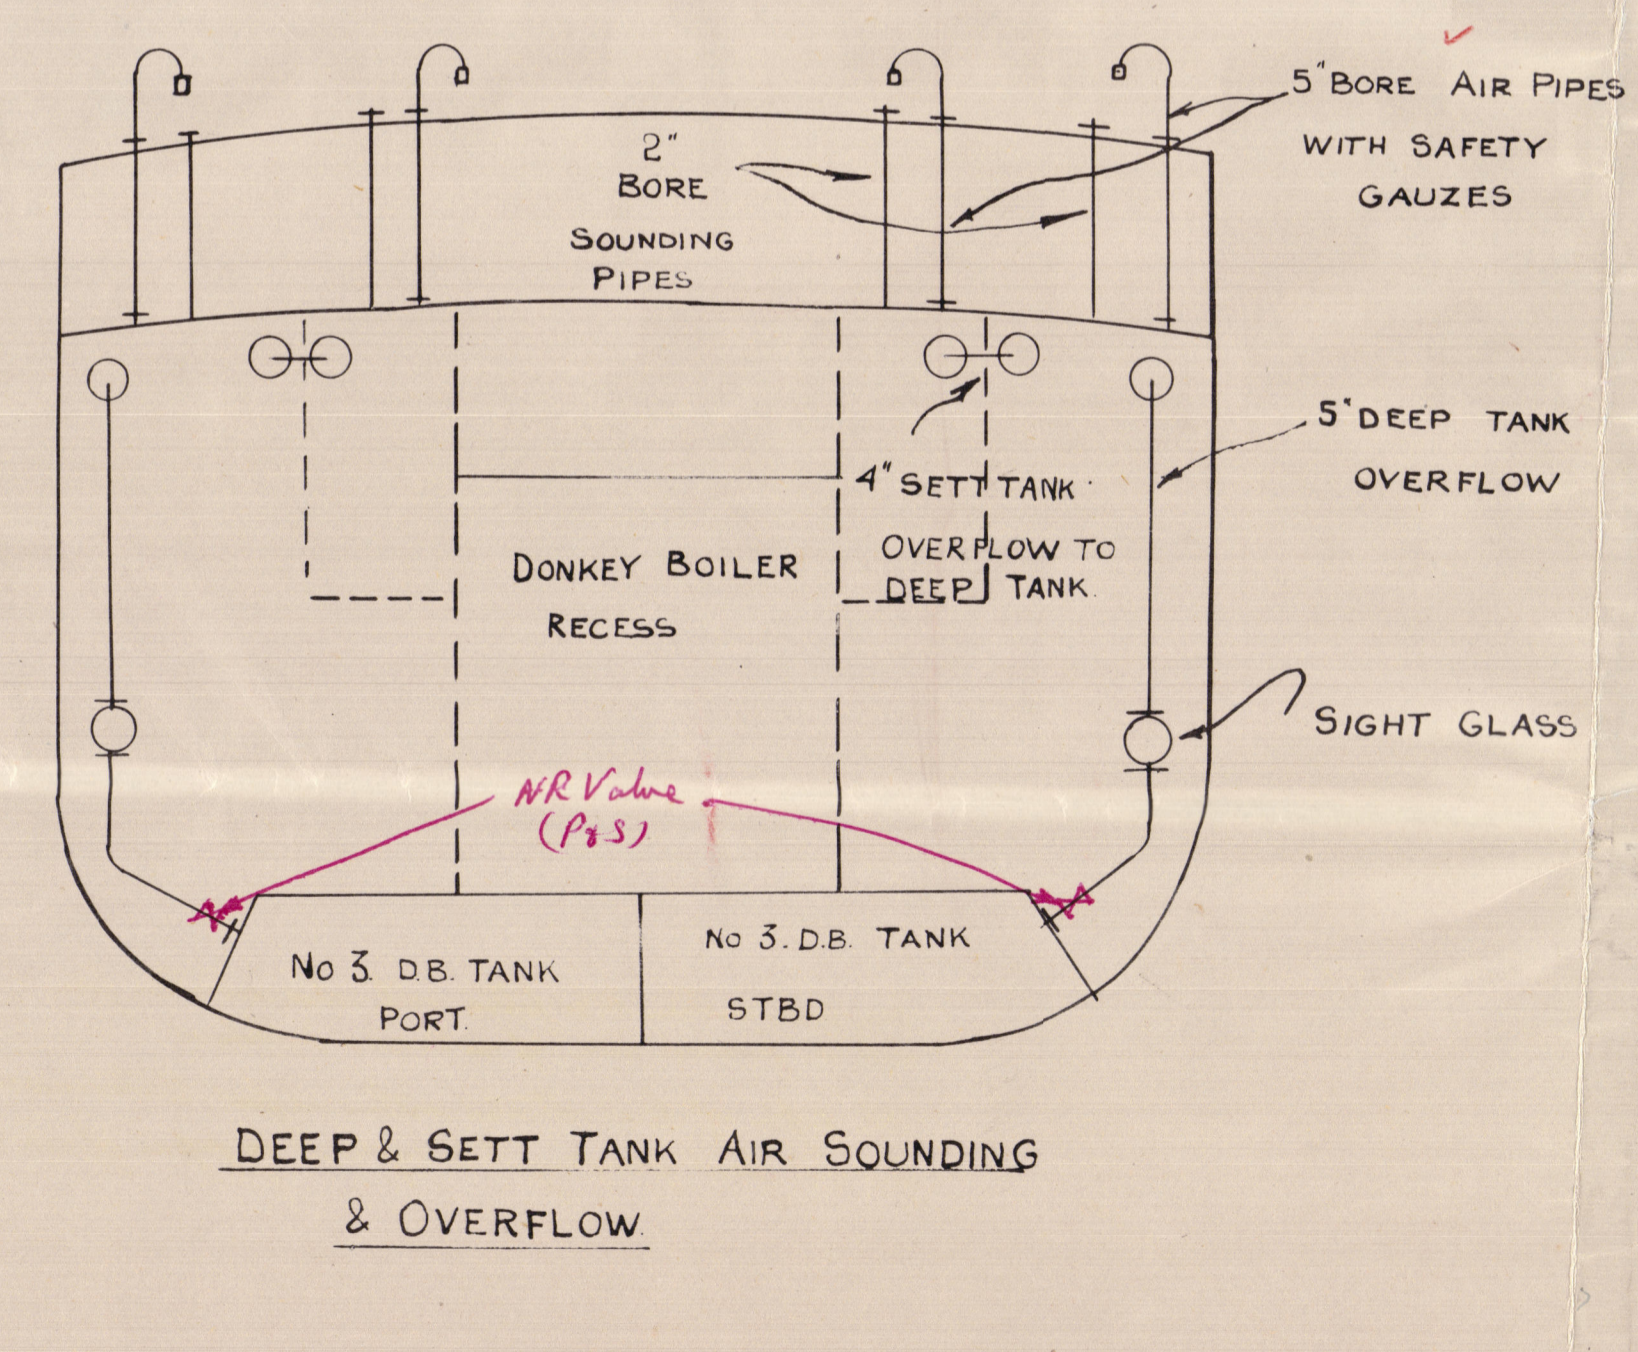 5" BORE AIR PIPES
WITH SAFETY
GAUZES
2"
BORE
SOUNDING
PIPES
5" DEEP TANK
OVERFLOW
4" SETT TANK
OVERFLOW TO
DEEP TANK.
DONKEY BOILER
RECESS
SIGHT GLASS
NR Valve
(P & S)
No 3. D.B. TANK
PORT.
No 3. D.B. TANK
STBD
DEEP & SETT TANK AIR SOUNDING
& OVERFLOW.